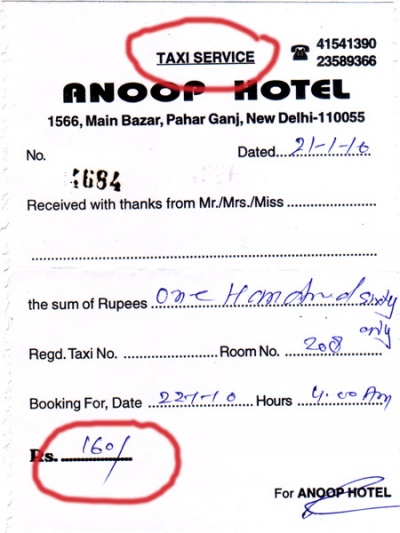 TAXI SERVICE
☎ 41541390
23589366
ANOOP HOTEL
1566, Main Bazar, Pahar Ganj, New Delhi-110055
No. Dated 21-1-10
1684
Received with thanks from Mr./Mrs./Miss
the sum of Rupees One Hundred sixty
only
Regd. Taxi No. Room No. 208
Booking For, Date 22-1-10 Hours 4.00 Am
Rs. 160/
For ANOOP HOTEL